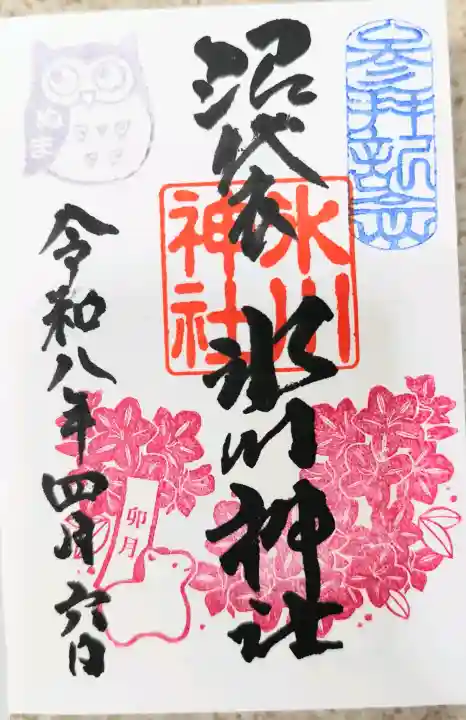 参拝記念
沼袋 氷川神社
氷川
神社
令和八年四月六日
卯月
ぬま